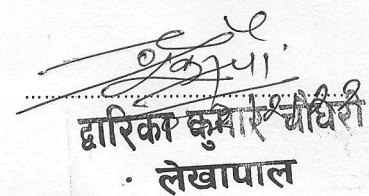 द्वारिका कुमार चौधरी
लेखापाल